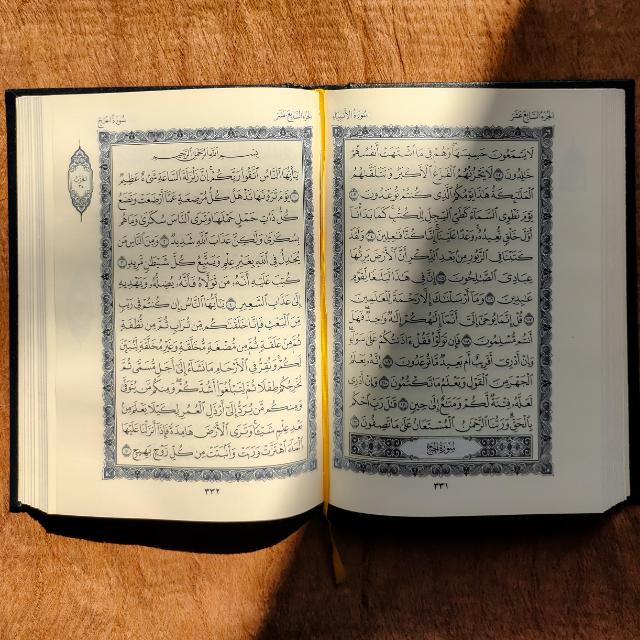 الجزء السابع عشر
سورة الأنبياء
لَا يَسْمَعُونَ حَسِيسَهَا وَهُمْ فِي مَا ٱشْتَهَتْ أَنفُسُهُمْ
خَٰلِدُونَ ١٠٢ لَا يَحْزُنُهُمُ ٱلْفَزَعُ ٱلْأَكْبَرُ وَتَتَلَقَّىٰهُمُ
ٱلْمَلَٰٓئِكَةُ هَٰذَا يَوْمُكُمُ ٱلَّذِي كُنتُمْ تُوعَدُونَ ١٠٣
يَوْمَ نَطْوِي ٱلسَّمَآءَ كَطَيِّ ٱلسِّجِلِّ لِلْكُتُبِ كَمَا بَدَأْنَآ
أَوَّلَ خَلْقٍ نُّعِيدُهُۥ وَعْدًا عَلَيْنَآ إِنَّا كُنَّا فَٰعِلِينَ ١٠٤ وَلَقَدْ
كَتَبْنَا فِي ٱلزَّبُورِ مِنۢ بَعْدِ ٱلذِّكْرِ أَنَّ ٱلْأَرْضَ يَرِثُهَا
عِبَادِيَ ٱلصَّٰلِحُونَ ١٠٥ إِنَّ فِي هَٰذَا لَبَلَٰغًا لِّقَوْمٍ
عَٰبِدِينَ ١٠٦ وَمَآ أَرْسَلْنَٰكَ إِلَّا رَحْمَةً لِّلْعَٰلَمِينَ
١٠٧ قُلْ إِنَّمَا يُوحَىٰٓ إِلَيَّ أَنَّمَآ إِلَٰهُكُمْ إِلَٰهٌ وَٰحِدٌ فَهَلْ
أَنتُم مُّسْلِمُونَ ١٠٨ فَإِن تَوَلَّوْا۟ فَقُلْ ءَاذَنتُكُمْ عَلَىٰ سَوَآءٍ
وَإِنْ أَدْرِيٓ أَقَرِيبٌ أَم بَعِيدٌ مَّا تُوعَدُونَ ١٠٩ إِنَّهُۥ يَعْلَمُ
ٱلْجَهْرَ مِنَ ٱلْقَوْلِ وَيَعْلَمُ مَا تَكْتُمُونَ ١١٠ وَإِنْ أَدْرِي
لَعَلَّهُۥ فِتْنَةٌ لَّكُمْ وَمَتَٰعٌ إِلَىٰ حِينٍ ١١١ قَٰلَ رَبِّ ٱحْكُم
بِٱلْحَقِّ وَرَبُّنَا ٱلرَّحْمَٰنُ ٱلْمُسْتَعَانُ عَلَىٰ مَا تَصِفُونَ ١١٢
سُورَةُ الحَجِّ
٣٣١
الجزء السابع عشر
سورة الحج
بِسْمِ ٱللَّهِ ٱلرَّحْمَٰنِ ٱلرَّحِيمِ
يَٰٓأَيُّهَا ٱلنَّاسُ ٱتَّقُوا۟ رَبَّكُمْ إِنَّ زَلْزَلَةَ ٱلسَّاعَةِ شَيْءٌ عَظِيمٌ
١ يَوْمَ تَرَوْنَهَا تَذْهَلُ كُلُّ مُرْضِعَةٍ عَمَّآ أَرْضَعَتْ وَتَضَعُ
كُلُّ ذَاتِ حَمْلٍ حَمْلَهَا وَتَرَى ٱلنَّاسَ سُكَٰرَىٰ وَمَا هُم
بِسُكَٰرَىٰ وَلَٰكِنَّ عَذَابَ ٱللَّهِ شَدِيدٌ ٢ وَمِنَ ٱلنَّاسِ مَن
يُجَٰدِلُ فِي ٱللَّهِ بِغَيْرِ عِلْمٍ وَيَتَّبِعُ كُلَّ شَيْطَٰنٍ مَّرِيدٍ ٣
كُتِبَ عَلَيْهِ أَنَّهُۥ مَن تَوَلَّاهُ فَأَنَّهُۥ يُضِلُّهُۥ وَيَهْدِيهِ
إِلَىٰ عَذَابِ ٱلسَّعِيرِ ٤ يَٰٓأَيُّهَا ٱلنَّاسُ إِن كُنتُمْ فِي رَيْبٍ
مِّنَ ٱلْبَعْثِ فَإِنَّا خَلَقْنَٰكُم مِّن تُرَابٍ ثُمَّ مِن نُّطْفَةٍ
ثُمَّ مِنْ عَلَقَةٍ ثُمَّ مِن مُّضْغَةٍ مُّخَلَّقَةٍ وَغَيْرِ مُخَلَّقَةٍ لِّنُبَيِّنَ
لَكُمْ وَنُقِرُّ فِي ٱلْأَرْحَامِ مَا نَشَآءُ إِلَىٰٓ أَجَلٍ مُّسَمًّى ثُمَّ
نُخْرِجُكُمْ طِفْلًا ثُمَّ لِتَبْلُغُوٓا۟ أَشُدَّكُمْ وَمِنكُم مَّن يُتَوَفَّىٰ
وَمِنكُم مَّن يُرَدُّ إِلَىٰٓ أَرْذَلِ ٱلْعُمُرِ لِكَيْلَا يَعْلَمَ مِنۢ
بَعْدِ عِلْمٍ شَيْـًٔا وَتَرَى ٱلْأَرْضَ هَامِدَةً فَإِذَآ أَنزَلْنَا عَلَيْهَا
ٱلْمَآءَ ٱهْتَزَّتْ وَرَبَتْ وَأَنۢبَتَتْ مِن كُلِّ زَوْجٍۭ بَهِيجٍ ٥
٣٣٢